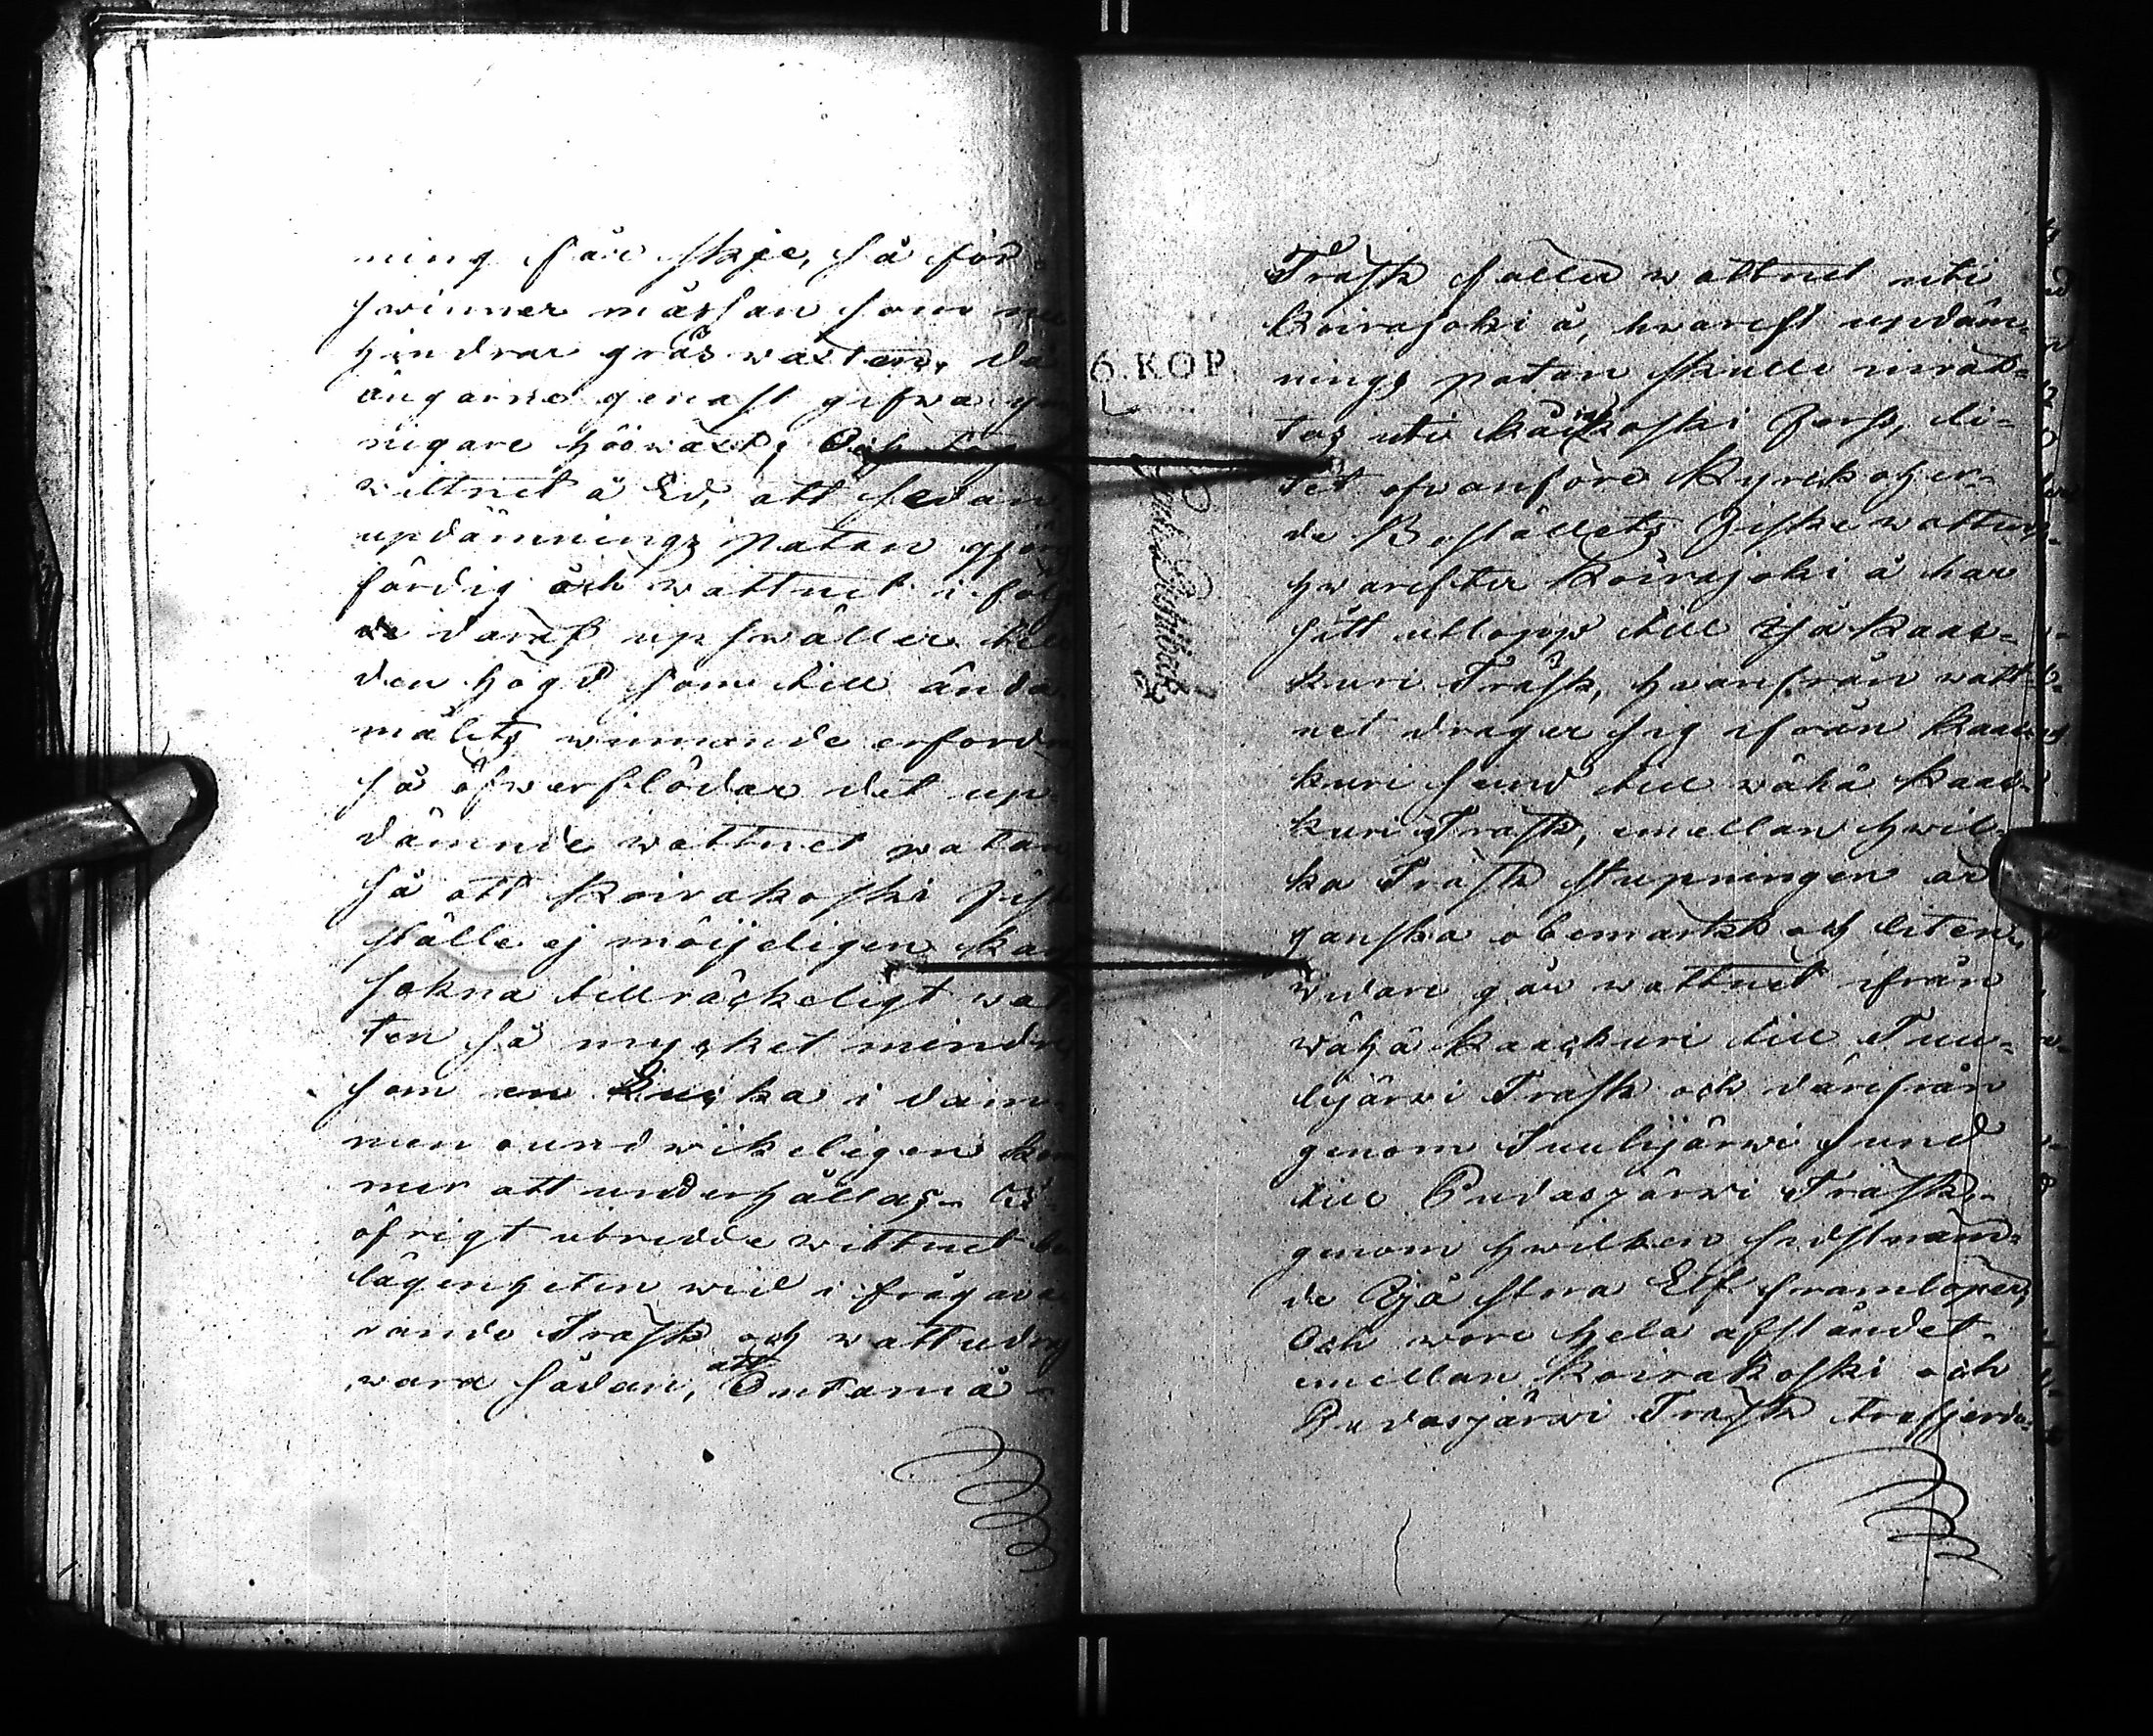 ning får skje, så för-
swinner måssan som nu
hindrar gräs wäxten, då
ängarne genast gifwa
nigare hööwäxt; Och tog
wittnet å Ed, att sedan
updämnings patan
färdig och wattnet i följ
de daraf upswäller till
den högd som till ända
målets winnande erfordr
så öfwerflödar det up-
dämnde wattnet patan
så att Koirakoski fisk
ställe ej möijeligen kan
sakna tillräckeligt wat-
ten så mycket mindre
som en Lucka i dam-
men oundwikeligen kom
mer att underhållas. I
öfrigt utredde wittnet be
lägenheten wid i fråga wa
rande Träsk och wattudrag
wara sådan, att Ontamä-
6. KOP.
Träsk faller wattnet uti
Koirajoki å, hwarest updäm-
nings patan skulle inrät-
tas uti koski Fors, li-
tet ofwanföre Kyrckoher-
de Boställets Fiske wattn,
hwarefter Koirajoki å har
sitt utlopp till Ijå Kaac-
kuri Träsk, hwarifrån watt-
net drager sig ifrån Kaac-
kuri sund till wähä Kaac-
kuri Träsk, emellan hwil-
ka Träsk stupningen är
ganska obemärkt och liten,
widare går wattnet ifrån
wähä Kaackuri till Tuu-
lijärwi Träsk och därifrån
genom Tuulijärwi sund
till Pudasjärwi Träsk,
genom hwilken sidstnämn-
de Ijå stora Elf framlöper,
Och wore hela afståndet
emellan Koirakoski och
Pudasjärwi Träsk trefjerde-